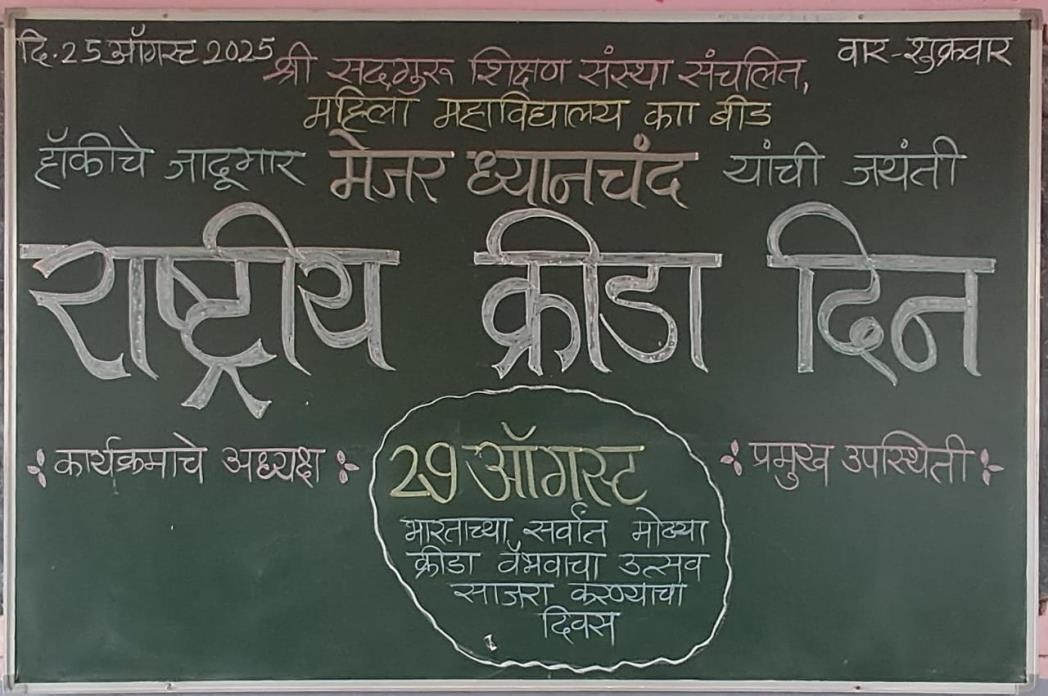 दि. 25 ऑगस्ट 2025 वार-शुक्रवार
श्री सदगुरू शिक्षण संस्था संचलित,
महिला महाविद्यालय काा बीड
हॉकीचे जादूगार मेजर ध्यानचंद यांची जयंती
राष्ट्रीय क्रीडा दिन
कार्यक्रमाचे अध्यक्ष
29 ऑगस्ट
प्रमुख उपस्थिती
भारताच्या सर्वात मोठ्या
क्रीडा वैभवाचा उत्सव
साजरा करण्याचा
दिवस